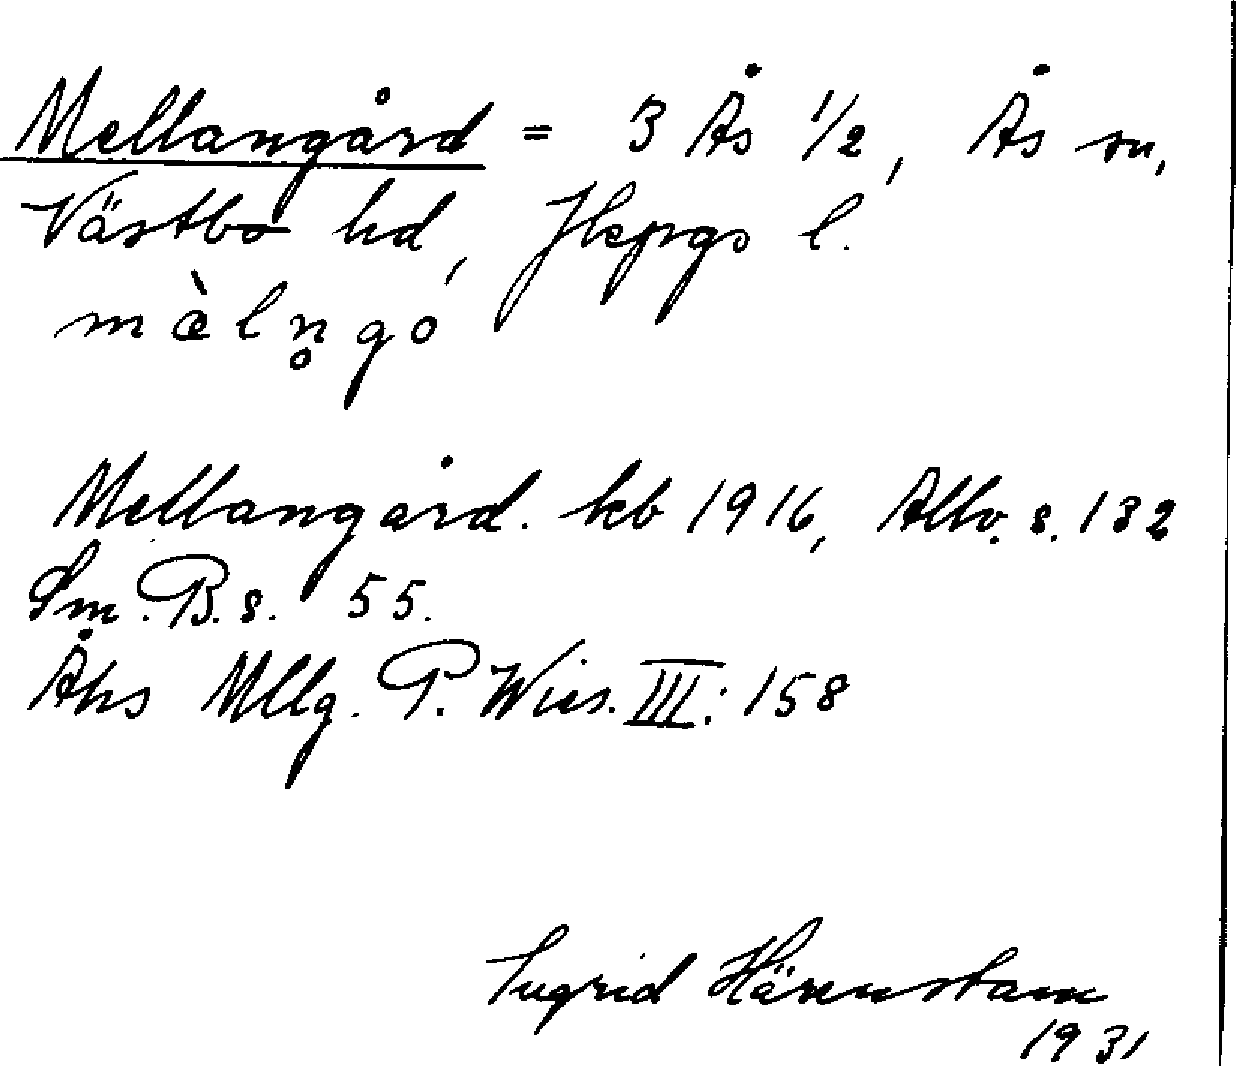 Mellangård = 3 Ås 1/2, Ås sn,
Västbo hd, Jkpgs l.
mæ̀ln̥gó
Mellangård. kb 1916, Allv. s. 132
Sm. B. s. 55.
Åhs Mllg. P. Wies. III: 158
Ingrid Härenstam
1931